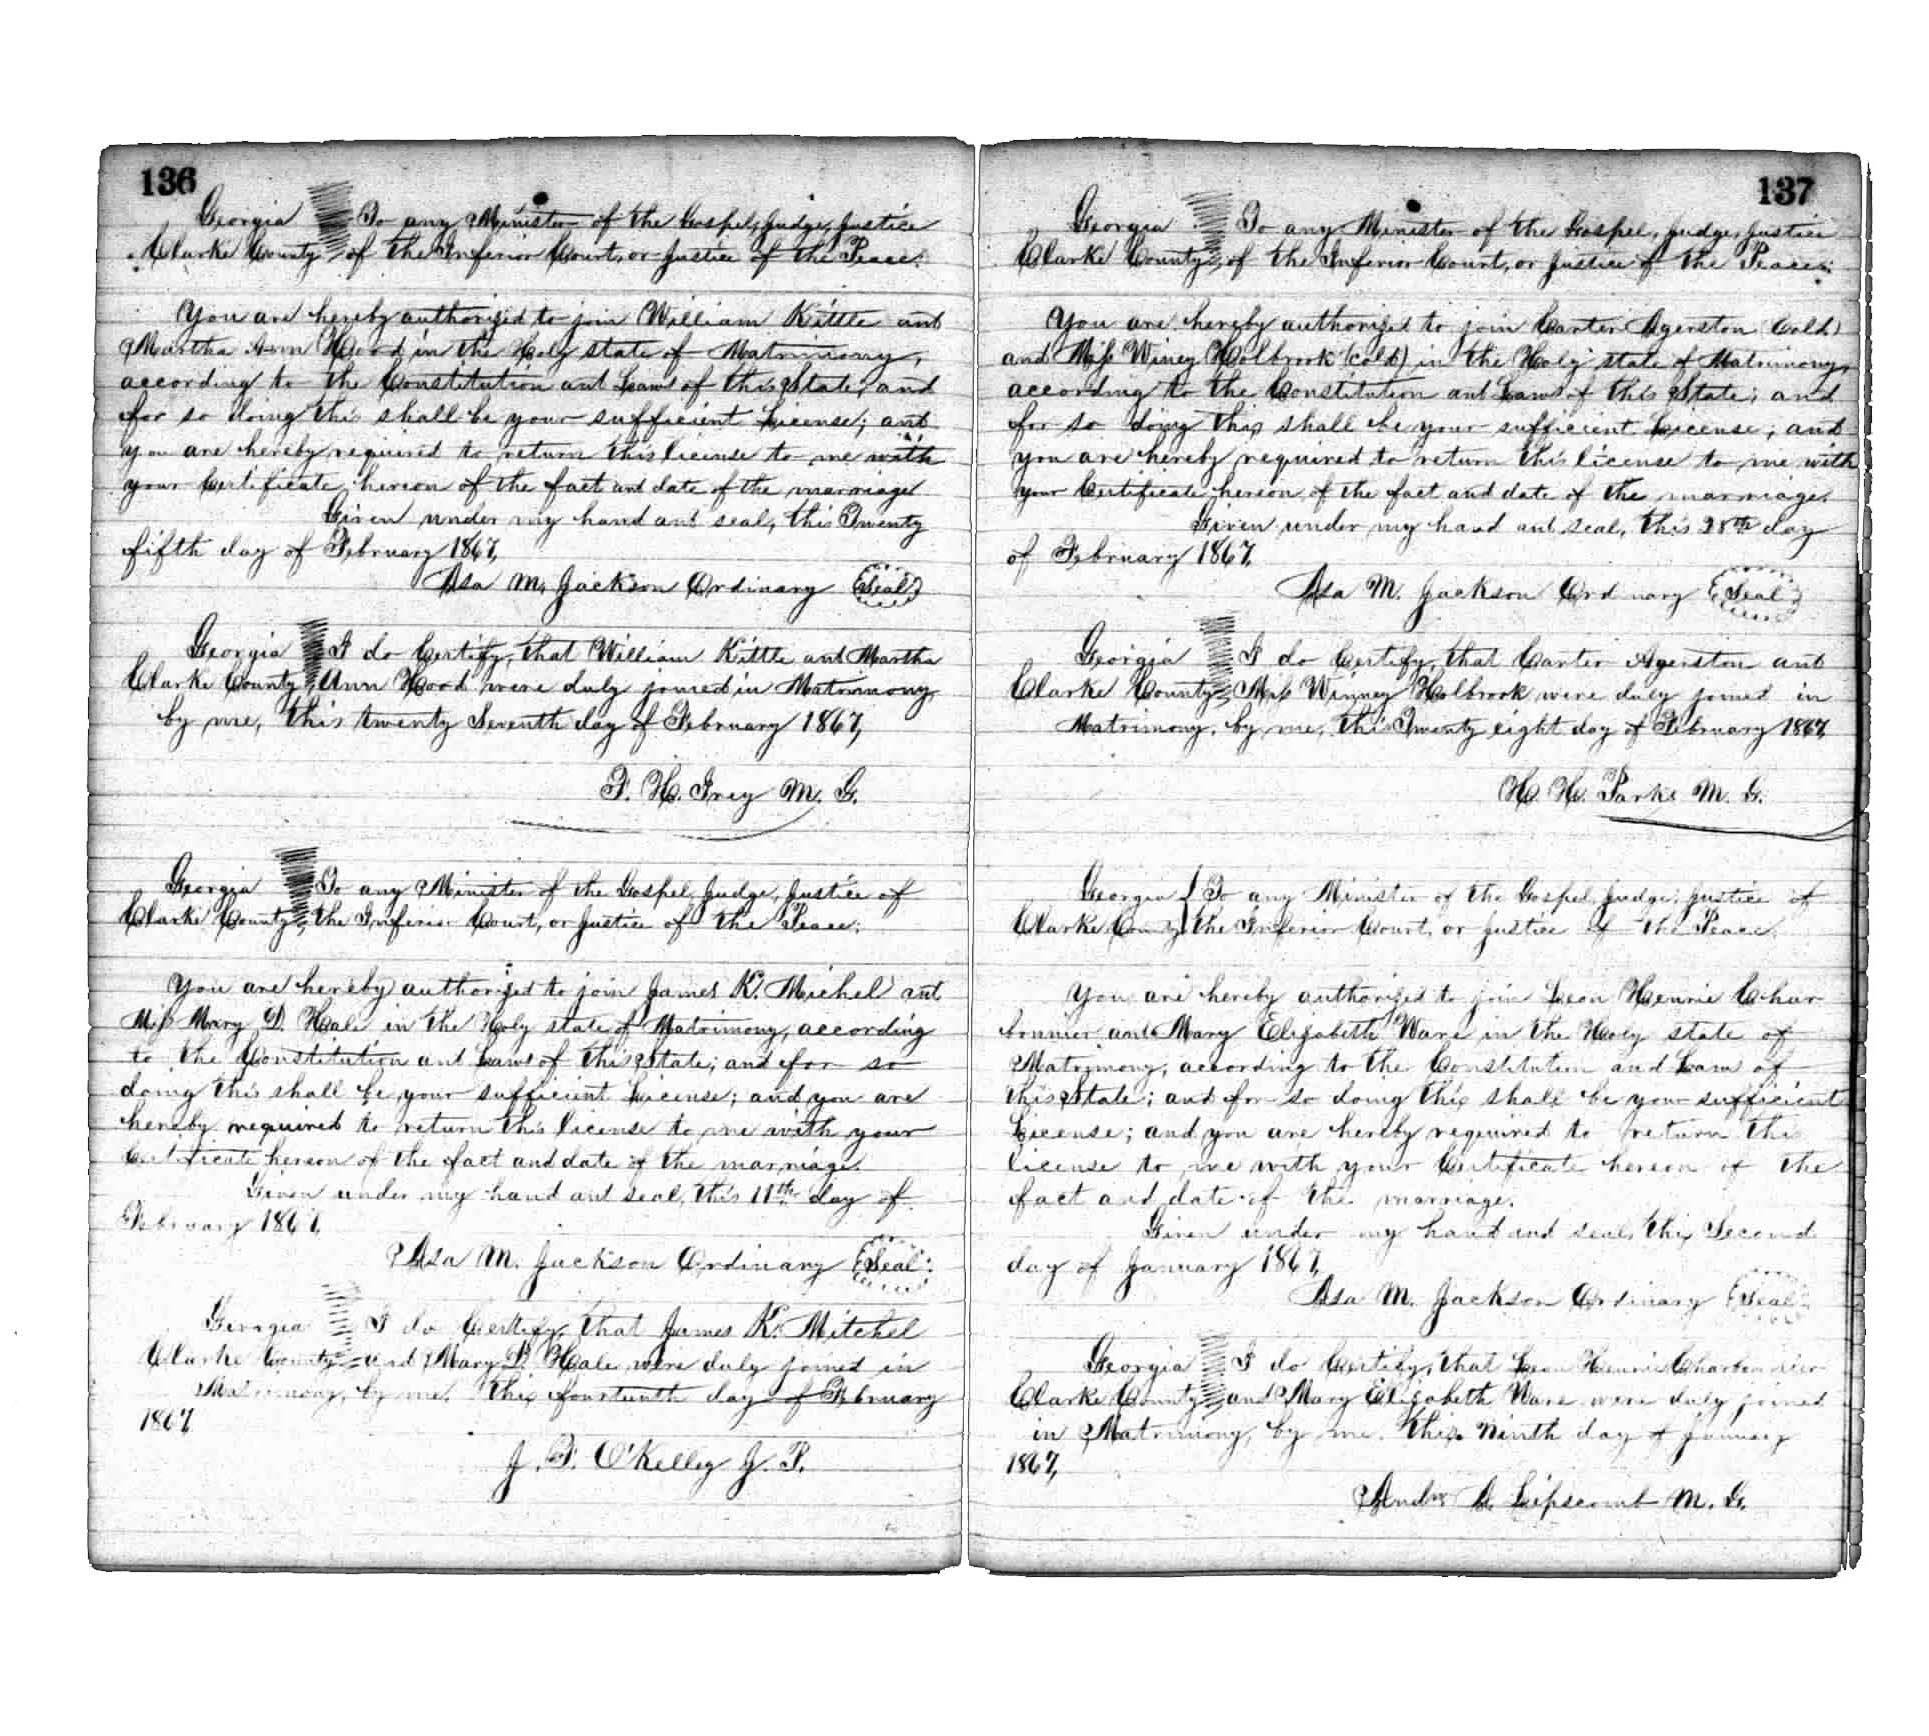 136
Georgia To any Minister of the Gospel, Judge, Justice
Clarke County, of the Inferior Court, or Justice of the Peace.
You are hereby authorized to join William Kittle and
Martha Ann Hood, in the Holy state of Matrimony,
according to the Constitution and Laws of this State, and
for so doing this shall be your sufficient License; and
you are hereby required to return this license to me with
your Certificate hereon of the fact and date of the marriage
Given under my hand and seal, this Twenty
fifth day of February 1867,
Asa M. Jackson Ordinary Seal
Georgia I do Certify, that William Kittle and Martha
Clarke County, Ann Hood were duly joined in Matrimony
by me, this twenty Seventh day of February 1867,
F. H. Ivey M. G.
Georgia To any Minister of the Gospel, Judge, Justice of
Clarke County, the Inferior Court, or Justice of the Peace.
You are hereby authorized to join James K. Michel and
Miss Mary D. Hale in the Holy state of Matrimony, according
to the Constitution and Laws of this State; and for so
doing this shall be your sufficient License; and you are
hereby required to return this license to me with your
Certificate hereon of the fact and date of the marriage.
Given under my hand and seal, this 11th day of
February 1867,
Asa M. Jackson Ordinary Seal
Georgia I do Certify, that James K. Mitchel
Clarke County and Mary D. Hale were duly joined in
Matrimony, by me. this fourteenth day of February
1867,
J. F. O'Kelley J. P.
137
Georgia To any Minister of the Gospel, Judge, Justice
Clarke County, of the Inferior Court, or Justice of the Peace.
You are hereby authorized to join Carter Agerston (Cold)
and Miss Winey Holbrook (cold) in the Holy state of Matrimony,
according to the Constitution and Laws of this State; and
for so doing this shall be your sufficient License; and
you are hereby required to return this license to me with
your Certificate hereon, of the fact and date of the marriage.
Given under my hand and seal, this 28th day
of February 1867.
Asa M. Jackson Ordinary Seal
Georgia I do Certify, that Carter Agerston and
Clarke County, Miss Winney Holbrook were duly joined in
Matrimony, by me, this Twenty eight day of February 1867,
H. H. Parks M. G.
Georgia To any Minister of the Gospel, Judge, Justice of
Clarke County the Inferior Court, or Justice of the Peace.
You are hereby authorized to join Leon Henrie Char
bonnier and Mary Elizabeth Ware in the Holy state of
Matrimony, according to the Constitution and Laws of
this State; and for so doing this shall be your sufficient
License; and you are hereby required to return this
license to me with your Certificate hereon of the
fact and date of the marriage.
Given under my hand and seal, this Second
day of January 1867,
Asa M. Jackson Ordinary Seal
Georgia I do Certify, that Leon Henrie Charbonnier
Clarke County, and Mary Elizabeth Ware were duly joined
in Matrimony, by me. this Ninth day of January
1867,
Andw A. Lipscomb M. G.